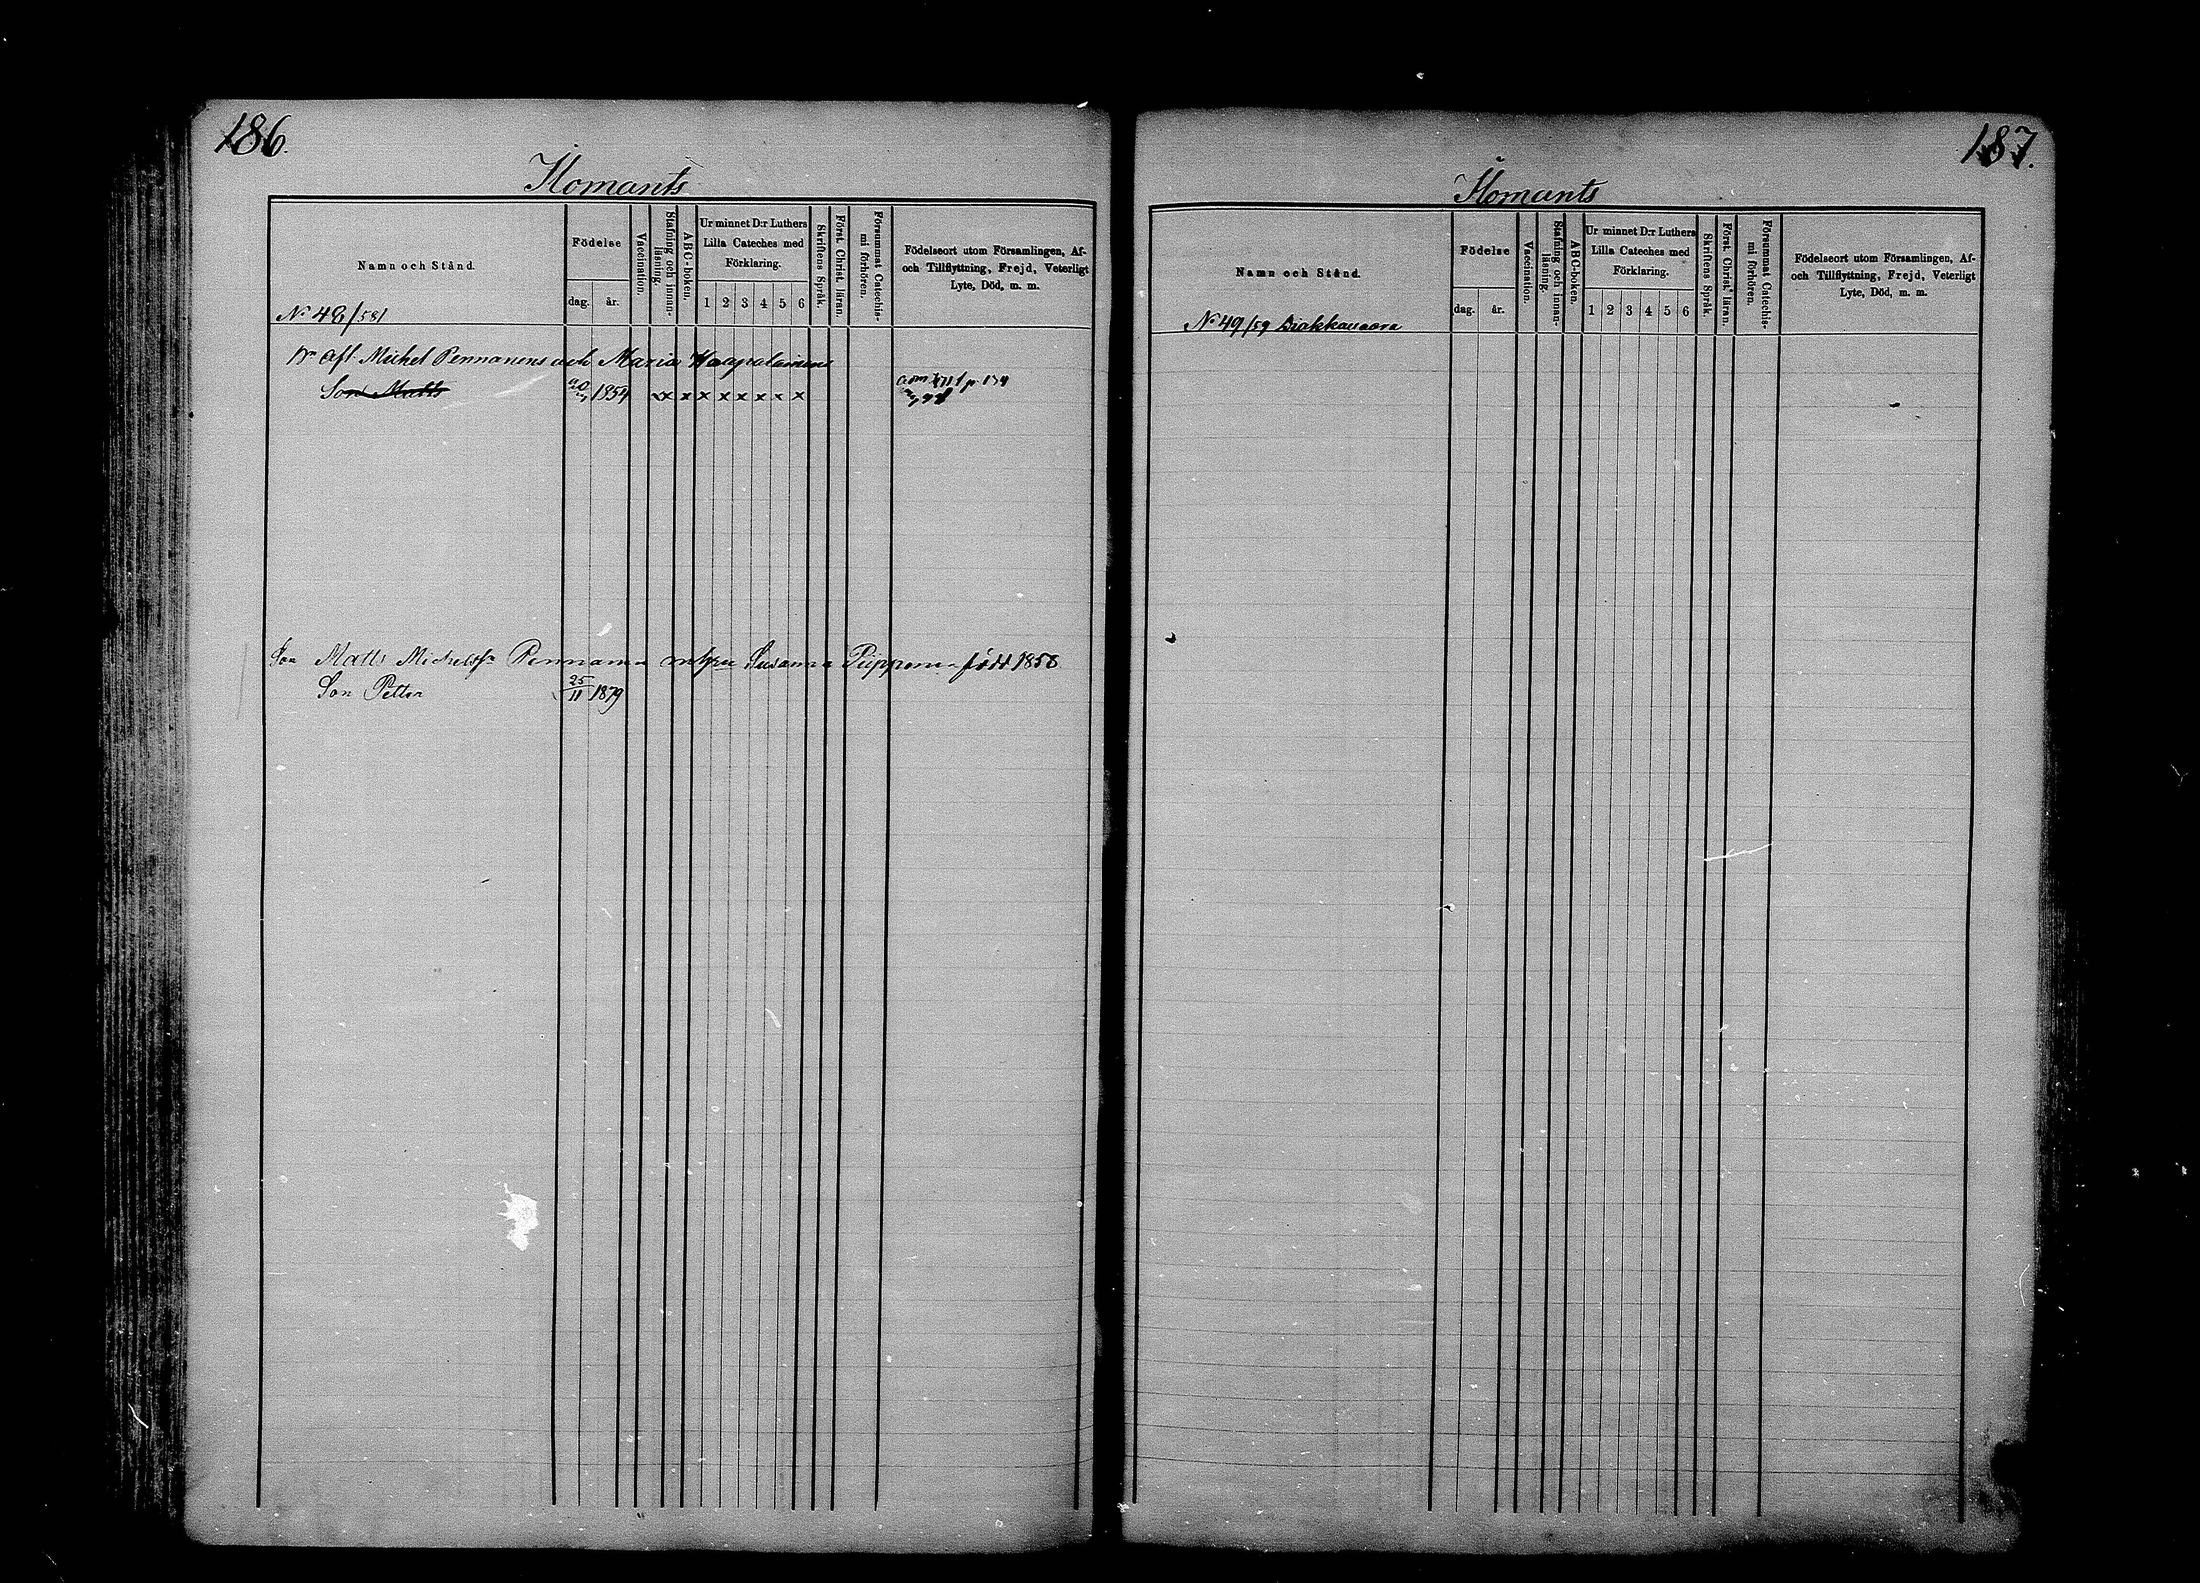 186.
Ilomants
Namn och Stånd.
Födelse
dag. år.
Vaccination.
Stafning och innanläsning.
ABC-boken.
Ur minnet D:r Luthers
Lilla Cateches med
Förklaring.
1 2 3 4 5 6
Skriftens Språk.
Först. Christ. läran.
Försummat Catechismi förhören.
Födelseort utom Församlingen, Af-
och Tillflyttning, Frejd, Veterligt
Lyte, Död, m. m.
N:o 48/581
afl. Michel Pennanens och Maria
Son Matts 1854 x x x x x x x x x
Son Matts Michelss:n Pennanen m hru Susanna Piipponen född 1858
Son Petter 25/11 1879
187.
Ilomants
Namn och Stånd.
Födelse
dag. år.
Vaccination.
Stafning och innanläsning.
ABC-boken.
Ur minnet D:r Luthers
Lilla Cateches med
Förklaring.
1 2 3 4 5 6
Skriftens Språk.
Först. Christ. läran.
Försummat Catechismi förhören.
Födelseort utom Församlingen, Af-
och Tillflyttning, Frejd, Veterligt
Lyte, Död, m. m.
N:o 49/59